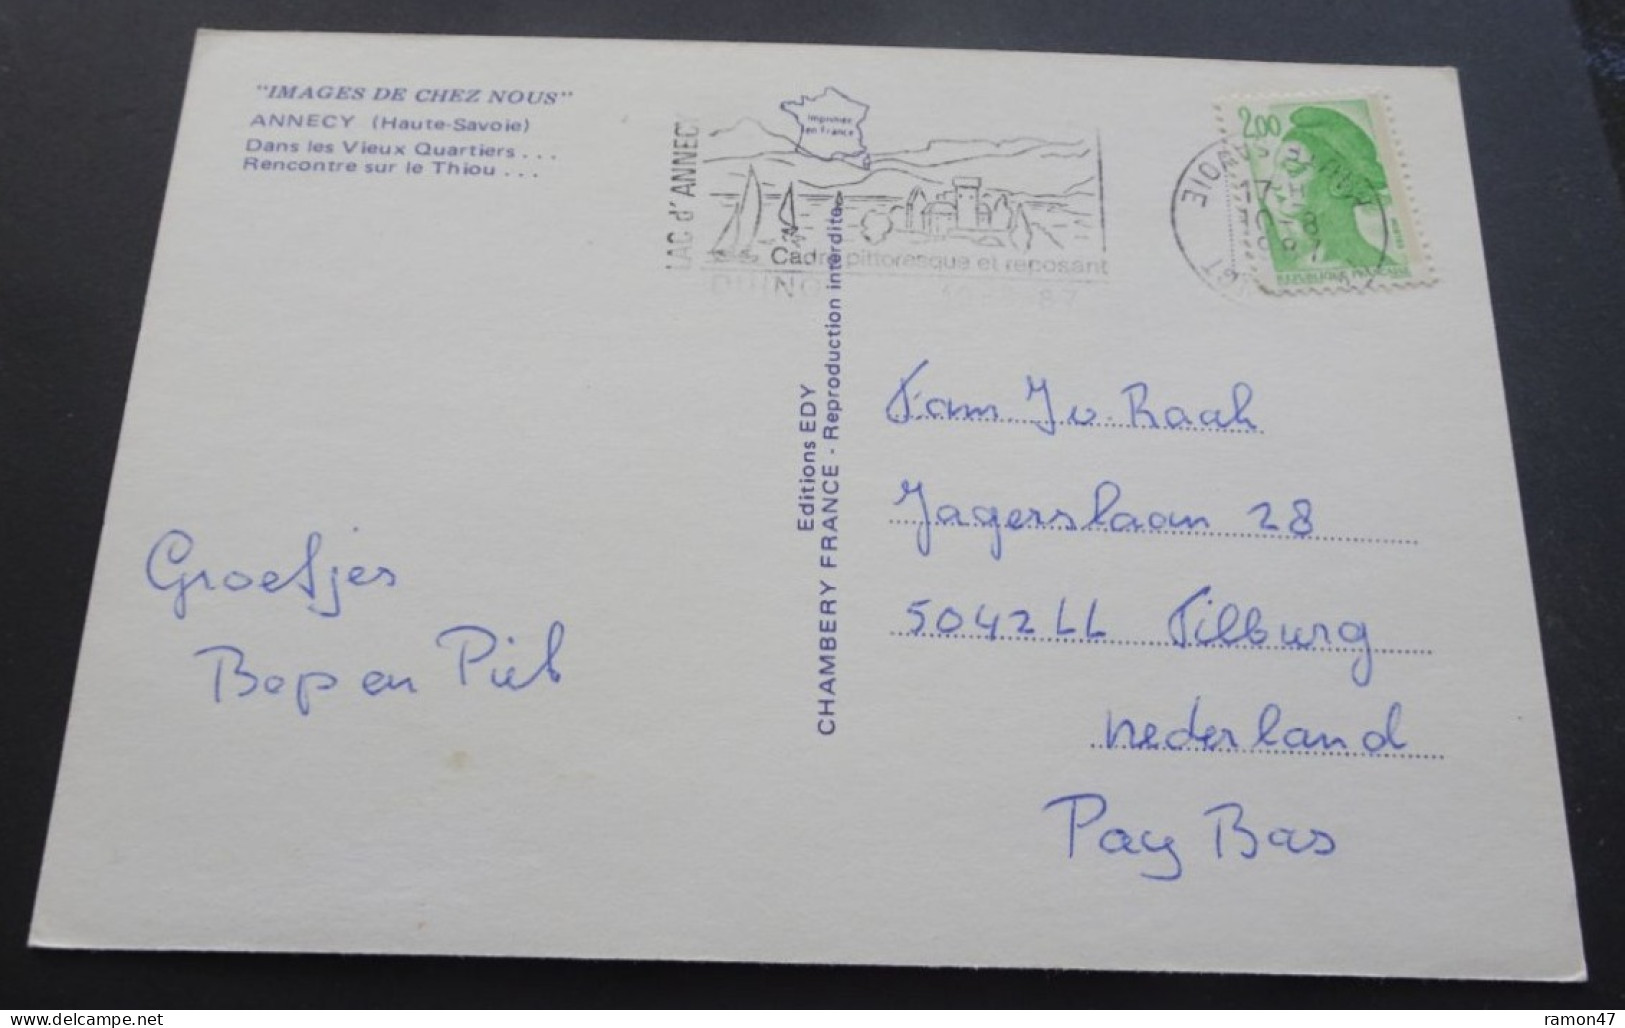 "IMAGES DE CHEZ NOUS"
ANNECY (Haute-Savoie)
Dans les Vieux Quartiers...
Rencontre sur le Thiou...
LAC d'ANNECY
Imprimée
en France
Cadre pittoresque et reposant
2,00
HAUTE SAVOIE
17 H
10-8
1987
REPUBLIQUE FRANCAISE
Editions EDY
CHAMBERY FRANCE - Reproduction interdite
Groetjes
Bep en Piet
Fam J v. Raak
Jagerslaan 28
5042 LL Tilburg
nederland
Pay Bas
ramon47